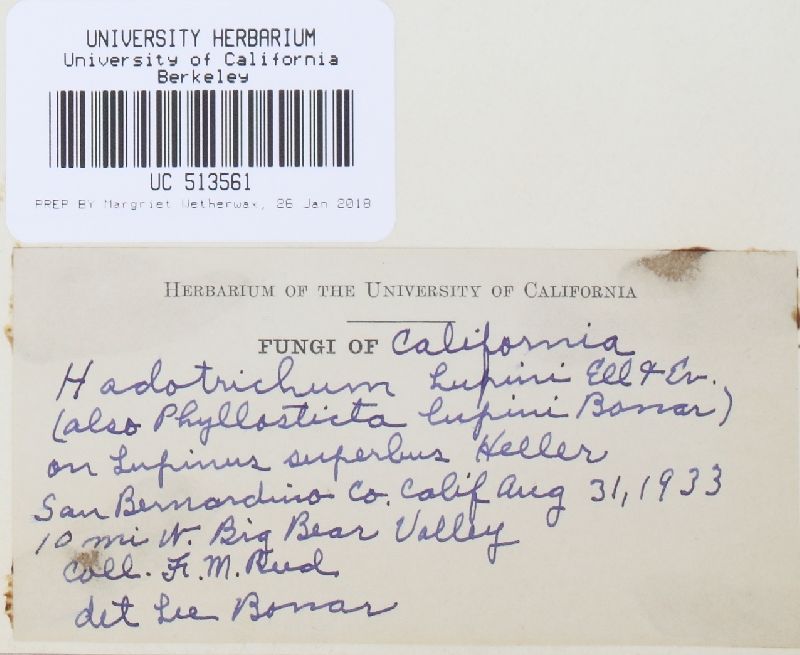 UNIVERSITY HERBARIUM
University of California
Berkeley
UC 513561
PREP BY Margriet Wetherwax, 26 Jan 2018
HERBARIUM OF THE UNIVERSITY OF CALIFORNIA
FUNGI OF California
Hadotrichum Lupini Ell & Ev.
(also Phyllosticta lupini Bonar)
on Lupinus superbus Heller
San Bernardino Co. Calif Aug 31, 1933
10 mi W. Big Bear Valley
Coll. Fr. M. Reed
det Lee Bonar